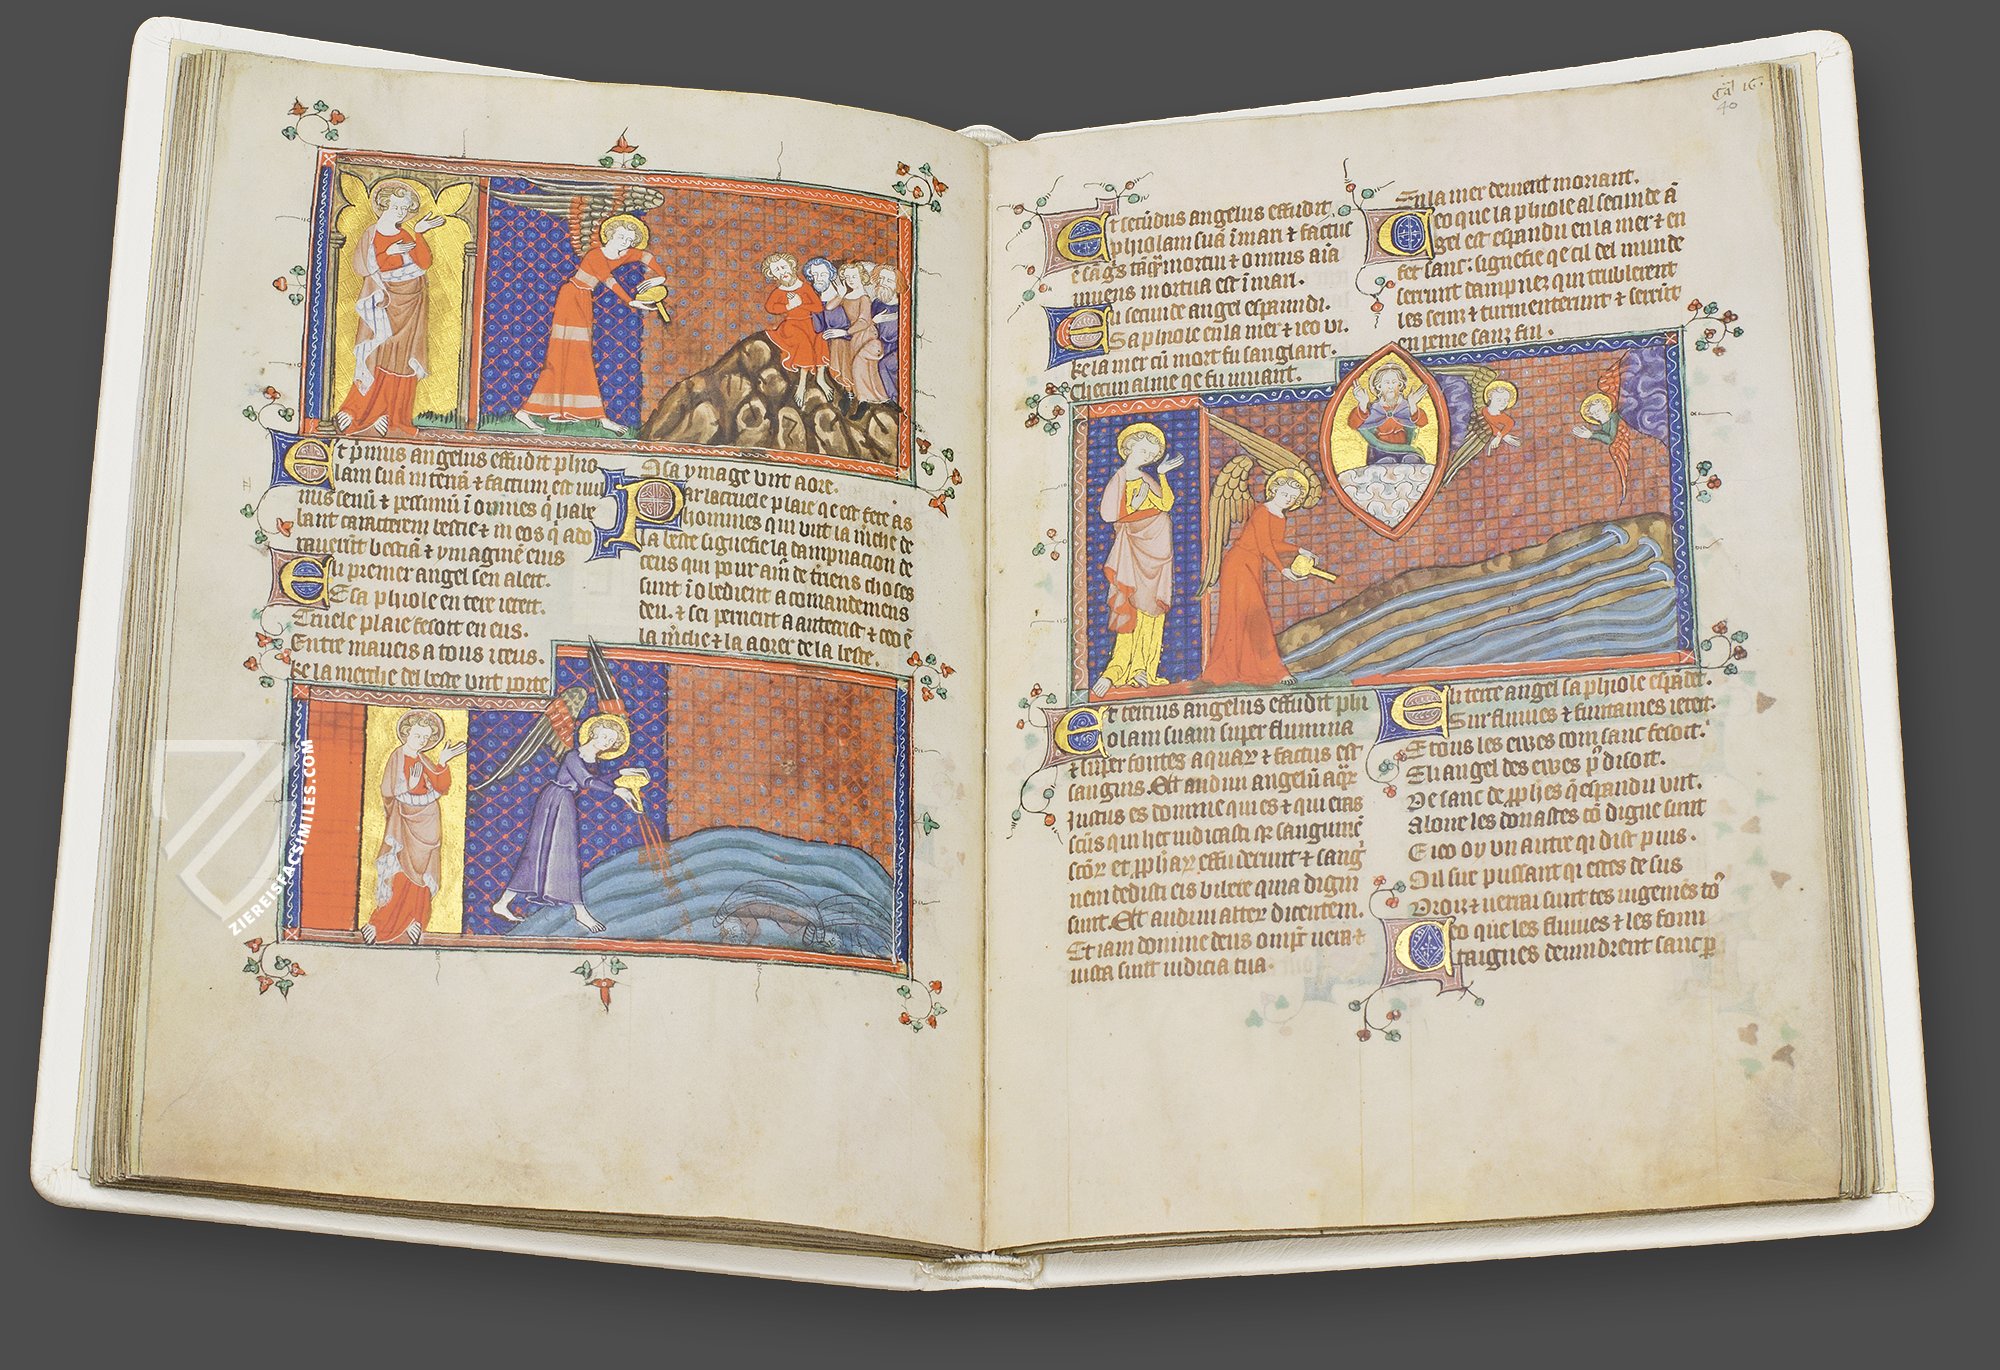 Et p̄mius angelus effudit phio
lam suā in terrā & factum est uul
nus seuū & pessimū ī omnes q̄ habe
bant caracterem bestie & in eos q̄ ado
rauerūt bestiā & ymaginē eius
Li premer angel sen aleit.
E sa phiole en tere ieteit.
Cruele plaie fesoit en eus.
Entre maueis a tous iceus.
ke la merche del beste unt porte
O sa ymage unt aore.
Par la cruele plaie qe est fete as
hommes qui unt la m̄che de
la beste signefie la dampnacion de
ceus qui pour am̄ de triens choses
sunt īobedient a comandemens
deu. & sei pernent a antecrist & ceo ē
la m̄che & la aorer de la beste.
ZIEREISFACSIMILES.COM
Cā 16
40
Et secūdus angelus effudit
phiolam suā ī mari & factus
ē sāgs tāq̄ mortui & omnis aīa
uiuens mortua est ī mari.
Li secunde angel espaundi.
Sa phiole en la mer & ieo vi.
ke la mer cū mort fu sanglant.
Checun alme qe fu uiuant.
En la mer deuient moriant.
Ceo que la phiole al secunde ā
gel est espandu en la mer & en
fet sanc: signefie qe cil del munde
serrunt dampnez qui trublerent
les seinz & turmenterunt & serrūt
en peine sanz fin.
Et tercius angelus effudit phi
olam suam super flumina
& super fontes aquar & factus est
sanguis. Et audiui angelū aqr
Iustus es domine qui es & qui eras
sc̄us qui hec iudicasti qr sanguinē
sc̄or et pphar effuderunt & sang
nem dedisti eis bibere quia digni
sunt. Et audiui alter dicentem.
Etiam domine deus omp̄r uera &
iusta sunt iudicia tua.
Li terce angel sa phiole espādet.
Sur fluuies & funtaines ieteit.
E tous les ewes com sanc fesoit.
Eli angel des ewes p̄ disoit.
De sanc de pphes q̄ espandu unt.
A boure les donastes cō digne sunt
E ieo oy un autre qi dist pius.
Oil sire puissant qi estes de sus
Droiz & uerrai sunt tes iugemēs to᷎
Ceo que les fluuies & les fonn
taignes deuindrent sanc p̄